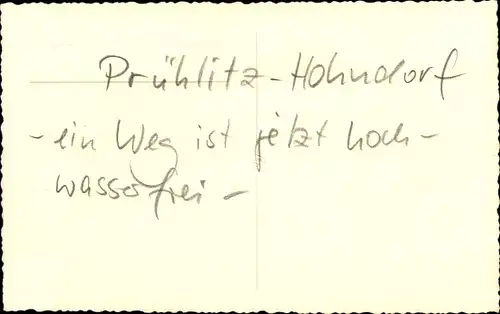 Prühlitz-Hohndorf
- ein Weg ist jetzt hoch-
wasserfrei -